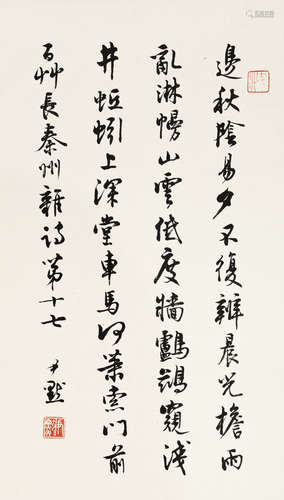 邊秋陰易夕不復辨晨光檐雨
亂淋幔山雲低度牆鸕鷀窺淺
井蚯蚓上深堂車馬何蕭索門前
百艸長秦州雜詩第十七
尹默